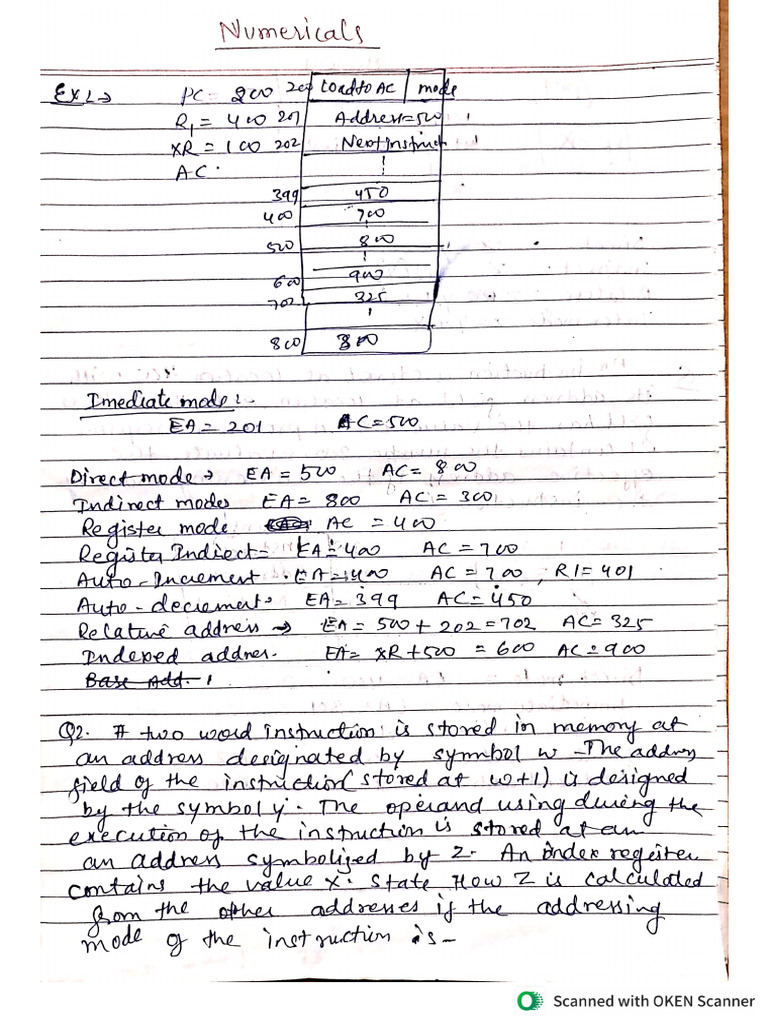 Numericals
Ex1→ PC = 200 200 Load to AC mode
R1 = 400 201 Address=500
XR = 100 202 Next instruct
AC.
399 450
400 700
500 800
600 900
702 325
800 300
Imediate mode :-
EA = 201 AC=500
Direct mode → EA = 500 AC= 800
Indirect modes EA = 800 AC = 300
Register mode AC = 400
Register Indirect = EA = 400 AC = 700
Auto-Increment . EA = 400 AC = 700, R1 = 401
Auto-decrement → EA = 399 AC = 450
Relative address → EA = 500 + 202 = 702 AC= 325
Indexed addres. EA= XR+500 = 600 AC = 900
Base Add.
Q2. A two word instruction is stored in memory at
an address designated by symbol w - The address
field of the instruction (stored at w+1) is designed
by the symbol y. The operand using during the
execution of the instruction is stored at an
an address symbolized by Z. An index register
contains the value X. State How Z is calculated
from the other addresses if the addressing
mode of the instruction is -
Scanned with OKEN Scanner